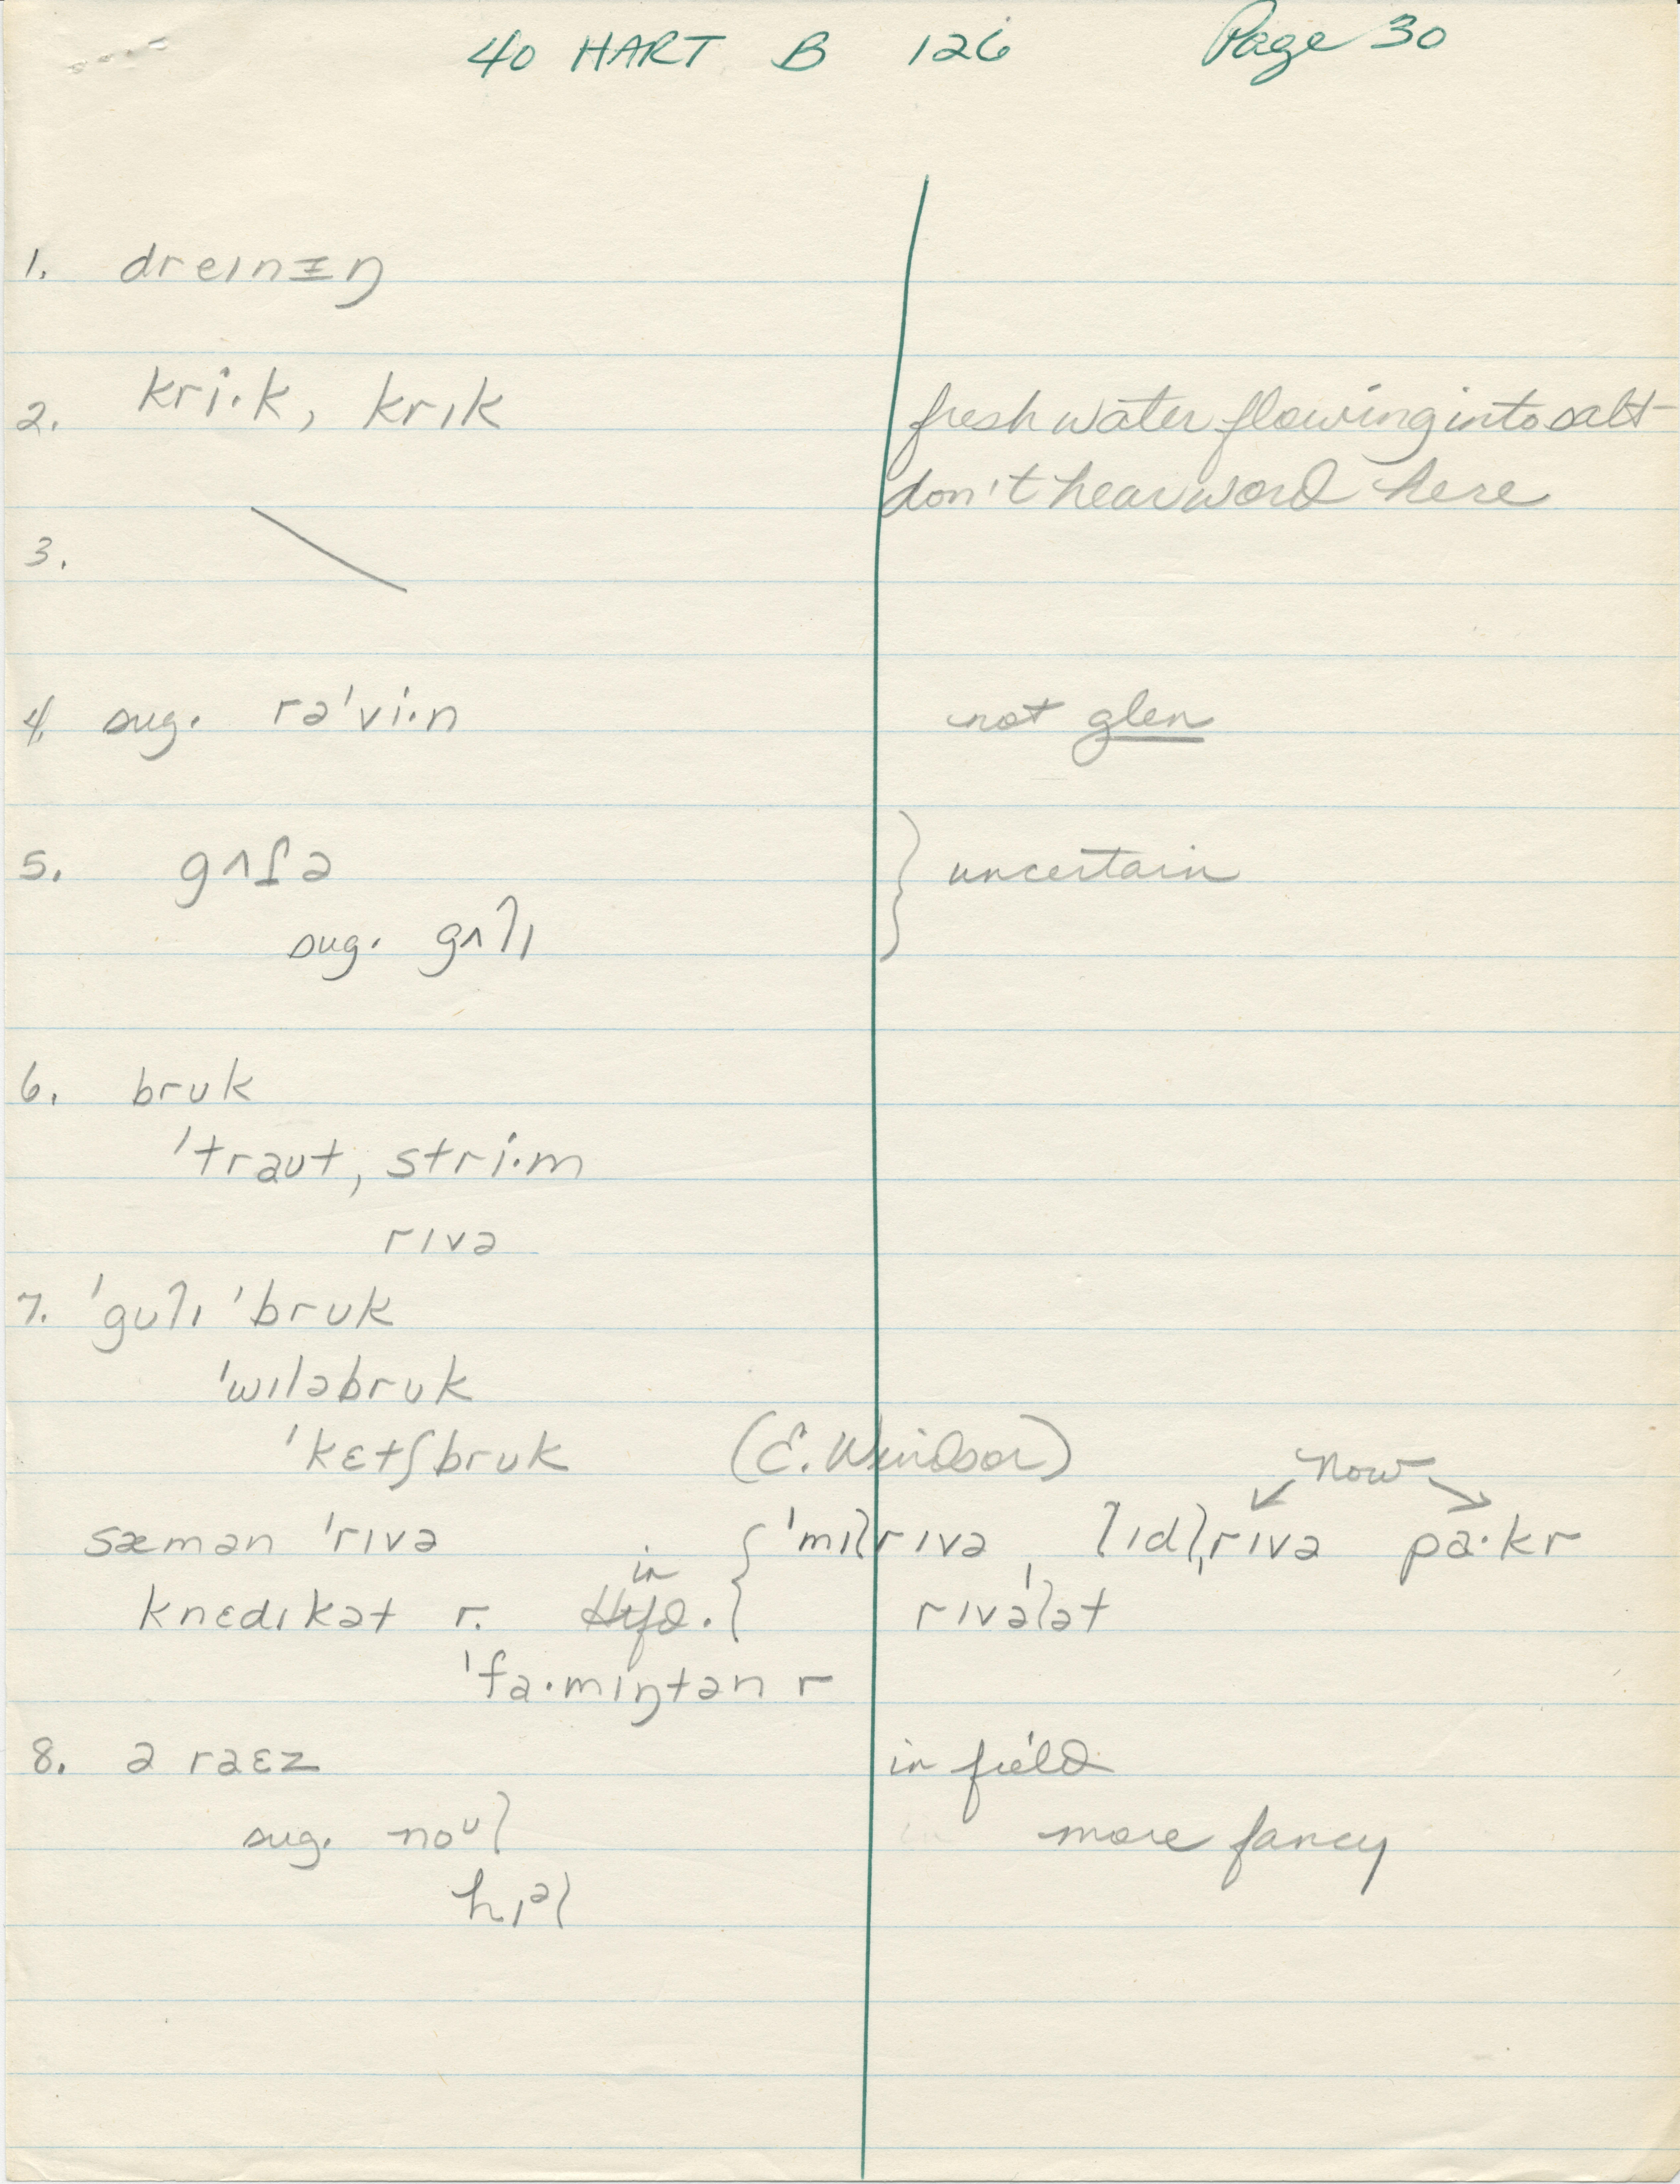 40 HART B 126 Page 30
1. dreɪnɪŋ
2. kri·k, krɪk fresh water flowing into salt-
don't hear word here
3.
4. sug. rə'vi·n not glen
5. gʌfə } uncertain
sug. gʌlɪ
6. brʊk
'traʊt, stri·m
rɪvə
7. 'gʊlɪ 'brʊk
'wɪləbrʊk
'kɛtʃbrʊk (E. Windsor) now
sæmən 'rɪvə in { 'mɪlrɪvə, lɪdl,rɪvə pa·kr
knɛdɪkət r. Htfd. { rɪvə'lət
'fa·mɪŋtən r
8. ə raɛz in field
sug. noʊl more fancy
hɪəl